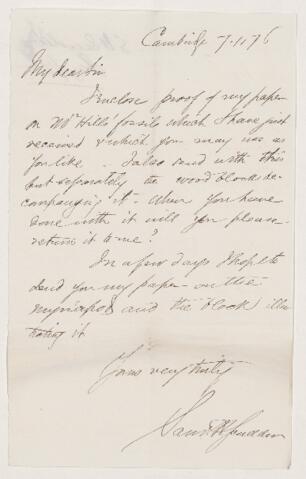 Cambridge 7.1.76
My dear Sir
I enclose proof of my paper
on Mr Hills fossils which I have just
received & which you may use as
you like. I also send with this
but separately the wood block ac-
companying it. When you have
done with it will you please
return it to me?
In a few days I hope to
send you my paper on the
myriapods and the block illus
trating it
Yours very truly
Sam. H. Scudder